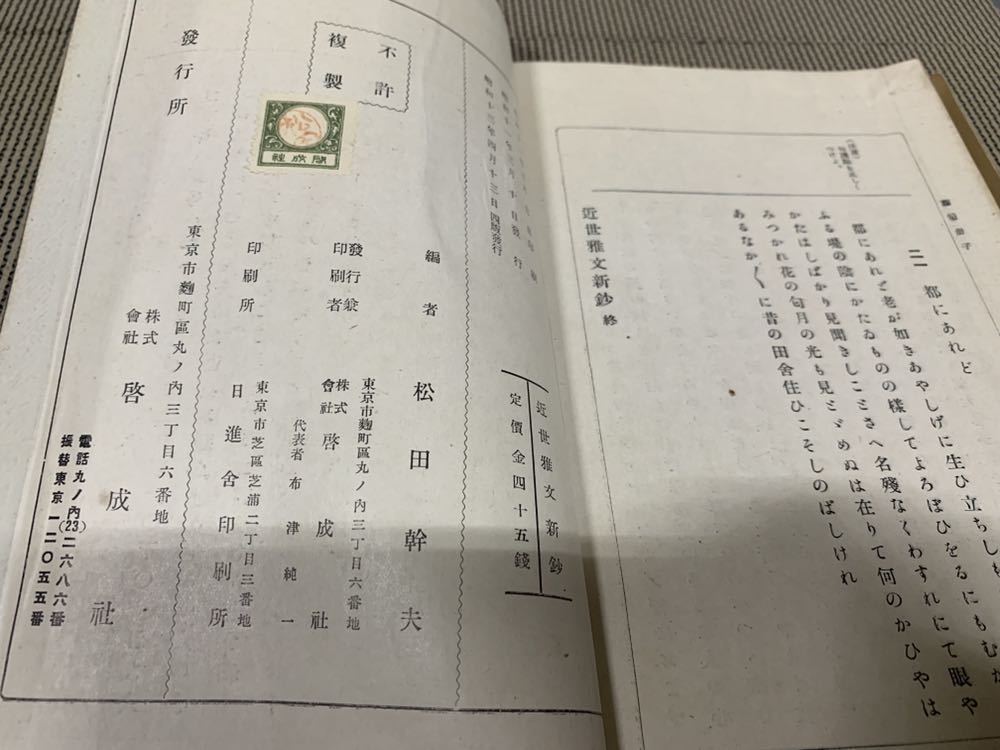 二一 都にあれど
都にあれど老が如きあやしげに生ひ立ちしも
よる堤の陰にかたゐものの樣してよろぼひをるにもむか
かたはしばかり見聞きしことさへ名殘なくわすれにて眼や
みつかれ花の匂月の光も見とゞめぬは在りて何のかひやは
あるなか〳〵に昔の田舍住ひこそしのばしけれ
近世雅文新鈔 終
近世雅文新鈔
定價金四十五錢
昭和十三年四月十三日四版發行
編者 松田幹夫
發行兼印刷者
東京市麴町區丸ノ內三丁目六番地
株式會社 啓成社
代表者 布津純一
印刷所
東京市芝區芝浦二丁目三番地
日進舍印刷所
不許複製
發行所
東京市麴町區丸ノ內三丁目六番地
株式會社 啓成社
電話丸ノ內(23)二六八六番
振替東京一二〇五五番